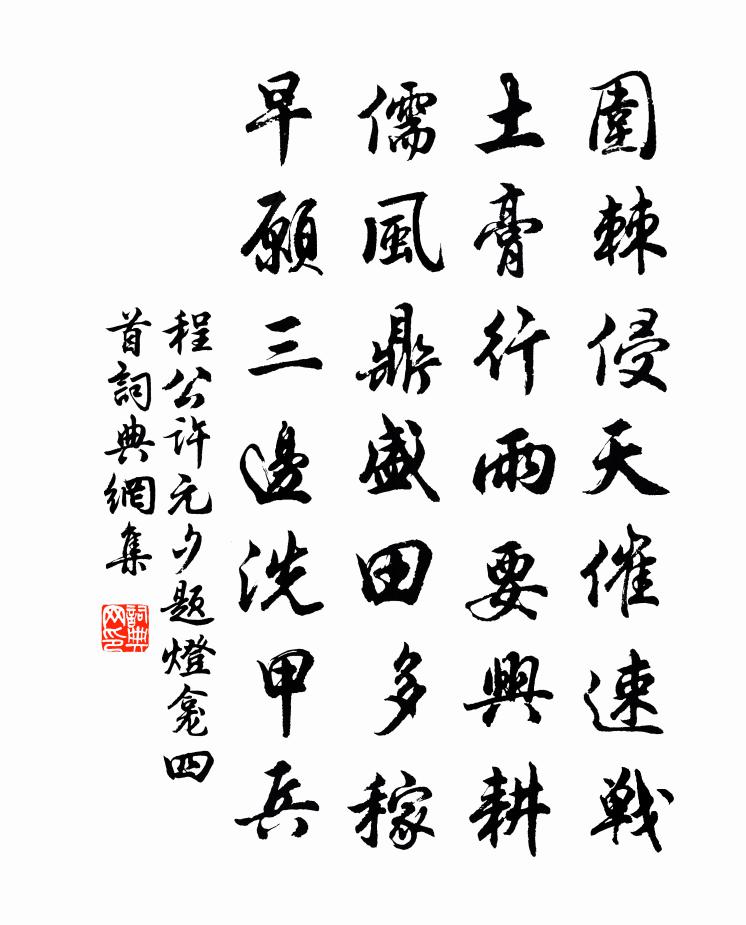 圍棘侵天催速戰
土膏行雨要興耕
儒風鼎盛田多稼
早願三邊洗甲兵
程公許元夕題燈龕四
首詞典網集
詞典网印